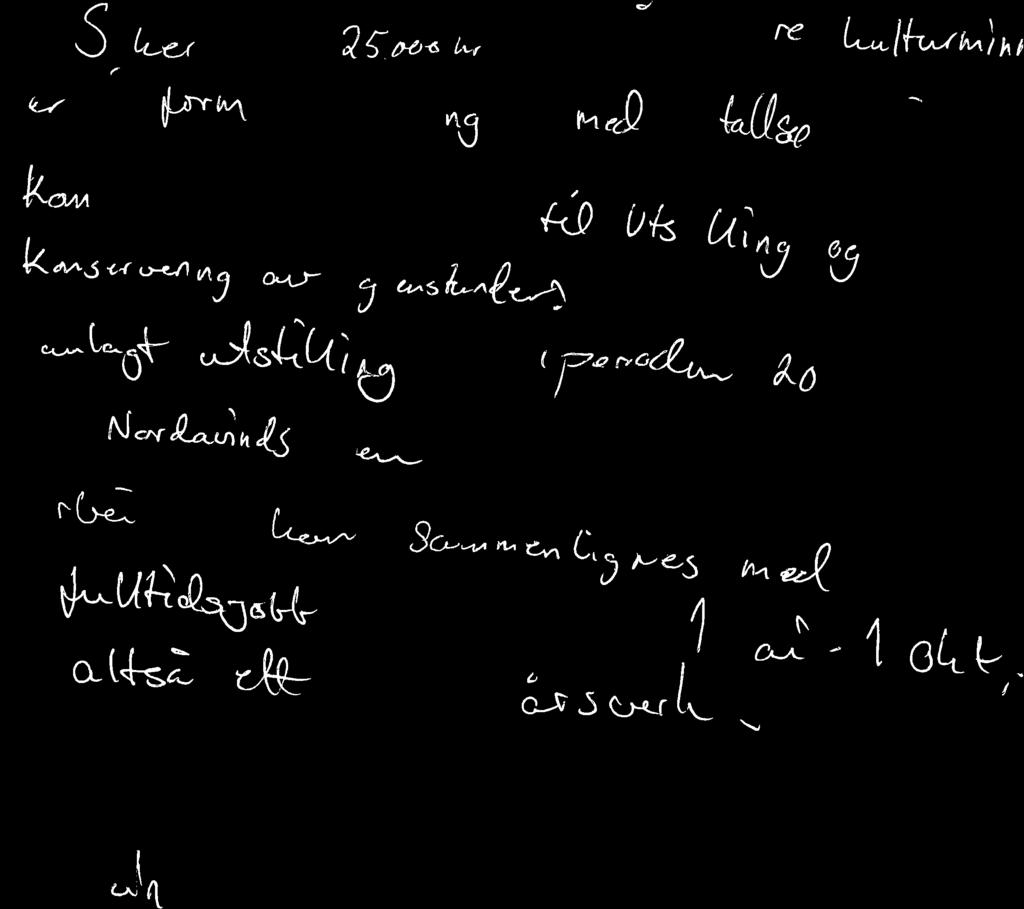 S ker 25.000 kr re kulturminn
er form ng med tallse
Kan til Uts lling og
Konservering av g enstander
anlagt utstilling i perioden 20
Nordavinds en
rbei kan Sammenlignes med
fulltidsjobb 1 ai - 1 Okt.
altså ett årsverk.